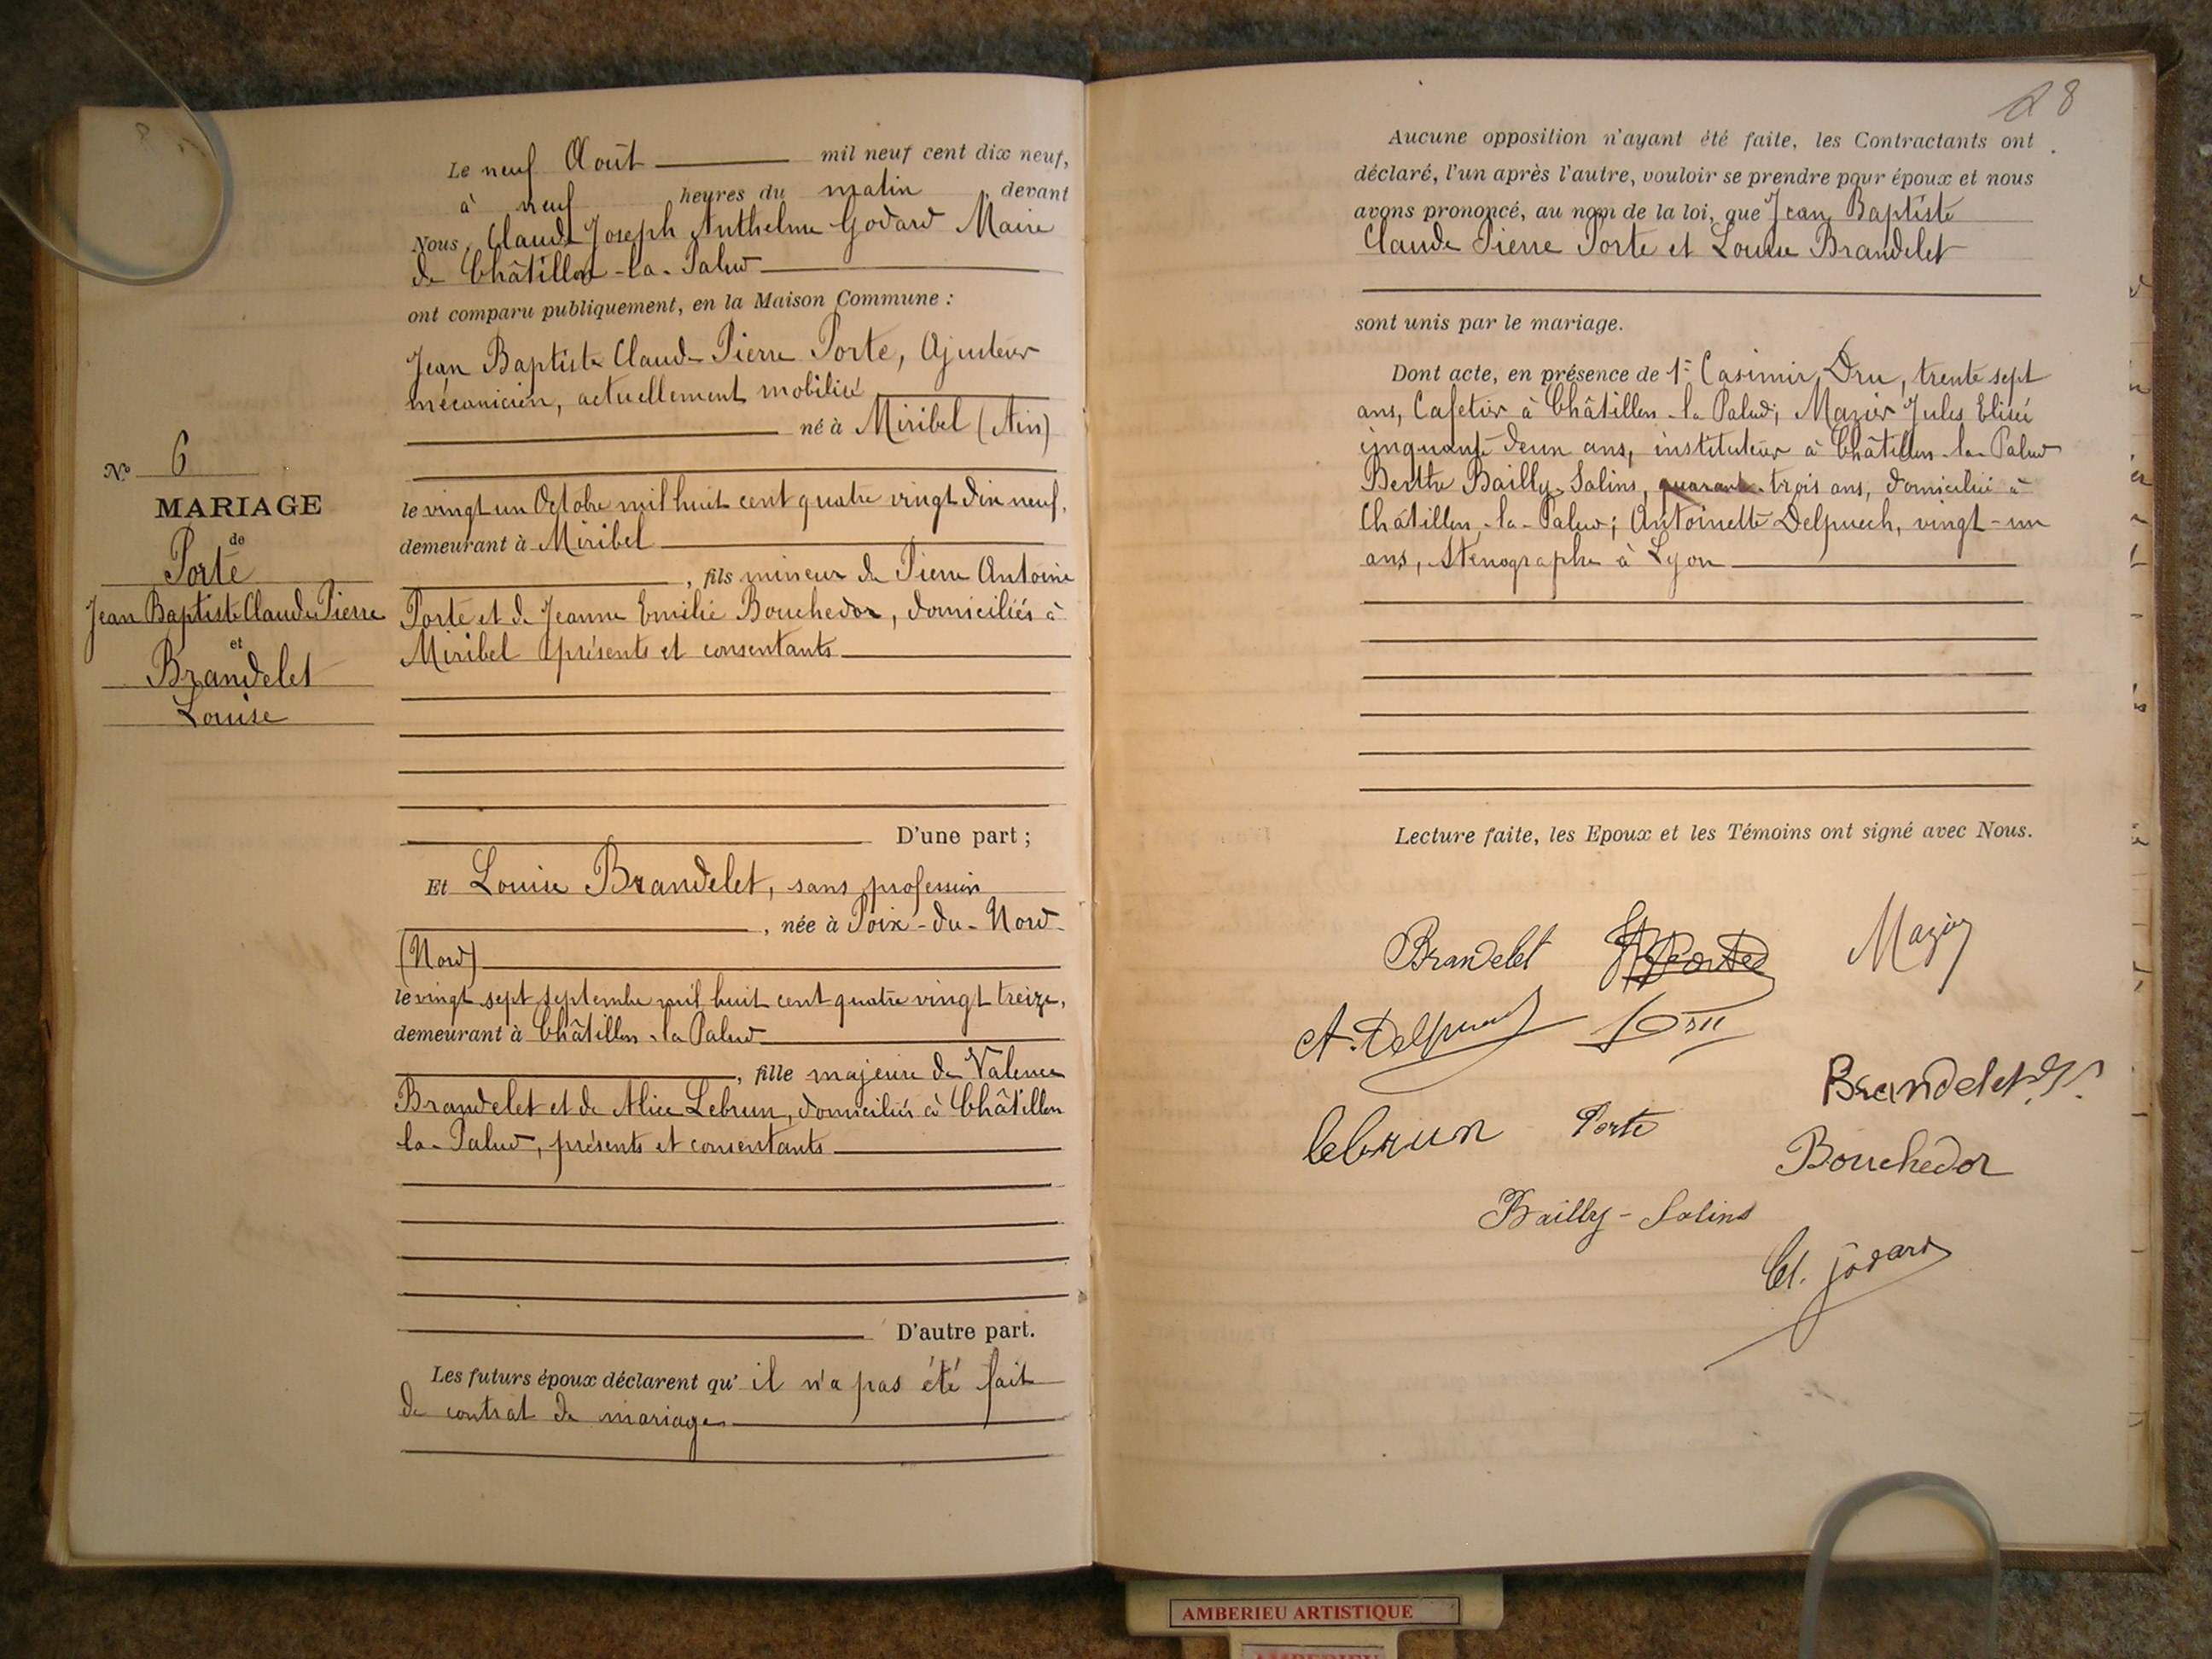 Le neuf Août mil neuf cent dix neuf,
à neuf heures du matin, devant
Nous, Claude Joseph Anthelme Godard Maire
de Châtillon-la-Palud
ont comparu publiquement, en la Maison Commune :
Jean Baptiste Claude Pierre Porte, Ajusteur
mécanicien, actuellement mobilisé
né à Miribel (Ain)
le vingt un Octobre mil huit cent quatre vingt dix neuf,
demeurant à Miribel
, fils mineur de Pierre Antoine
Porte et de Jeanne Emilie Bouchedor, domiciliés à
Miribel présents et consentants
D'une part ;
Et Louise Brandelet, sans profession
, née à Poix-du-Nord
(Nord)
le vingt sept septembre mil huit cent quatre vingt treize,
demeurant à Châtillon-la-Palud
, fille majeure de Valence
Brandelet et de Alice Lebrun, domiciliés à Châtillon
la-Palud, présents et consentants
D'autre part.
Les futurs époux déclarent qu'il n'a pas été fait
de contrat de mariage
N° 6
MARIAGE
de
Porte
Jean Baptiste Claude Pierre
et
Brandelet
Louise
28
Aucune opposition n'ayant été faite, les Contractants ont
déclaré, l'un après l'autre, vouloir se prendre pour époux et nous
avons prononcé, au nom de la loi, que Jean Baptiste
Claude Pierre Porte et Louise Brandelet
sont unis par le mariage.
Dont acte, en présence de 1° Casimir Dru, trente sept
ans, Cafetier à Châtillon-la Palud; Mazier Jules Elisée
cinquante deux ans, instituteur à Châtillon-la-Palud
Berthe Bailly-Salins, quarante-trois ans, domiciliée à
Châtillon-la-Palud; Antoinette Delpuech, vingt-un
ans, sténographe à Lyon
Lecture faite, les Epoux et les Témoins ont signé avec Nous.
Brandelet Porte Mazier
A. Delpuech Dru
Brandelet
lebrun Porte
Bouchedor
Bailly-Salins
Cl. Godard
AMBERIEU ARTISTIQUE
AMBERIEU